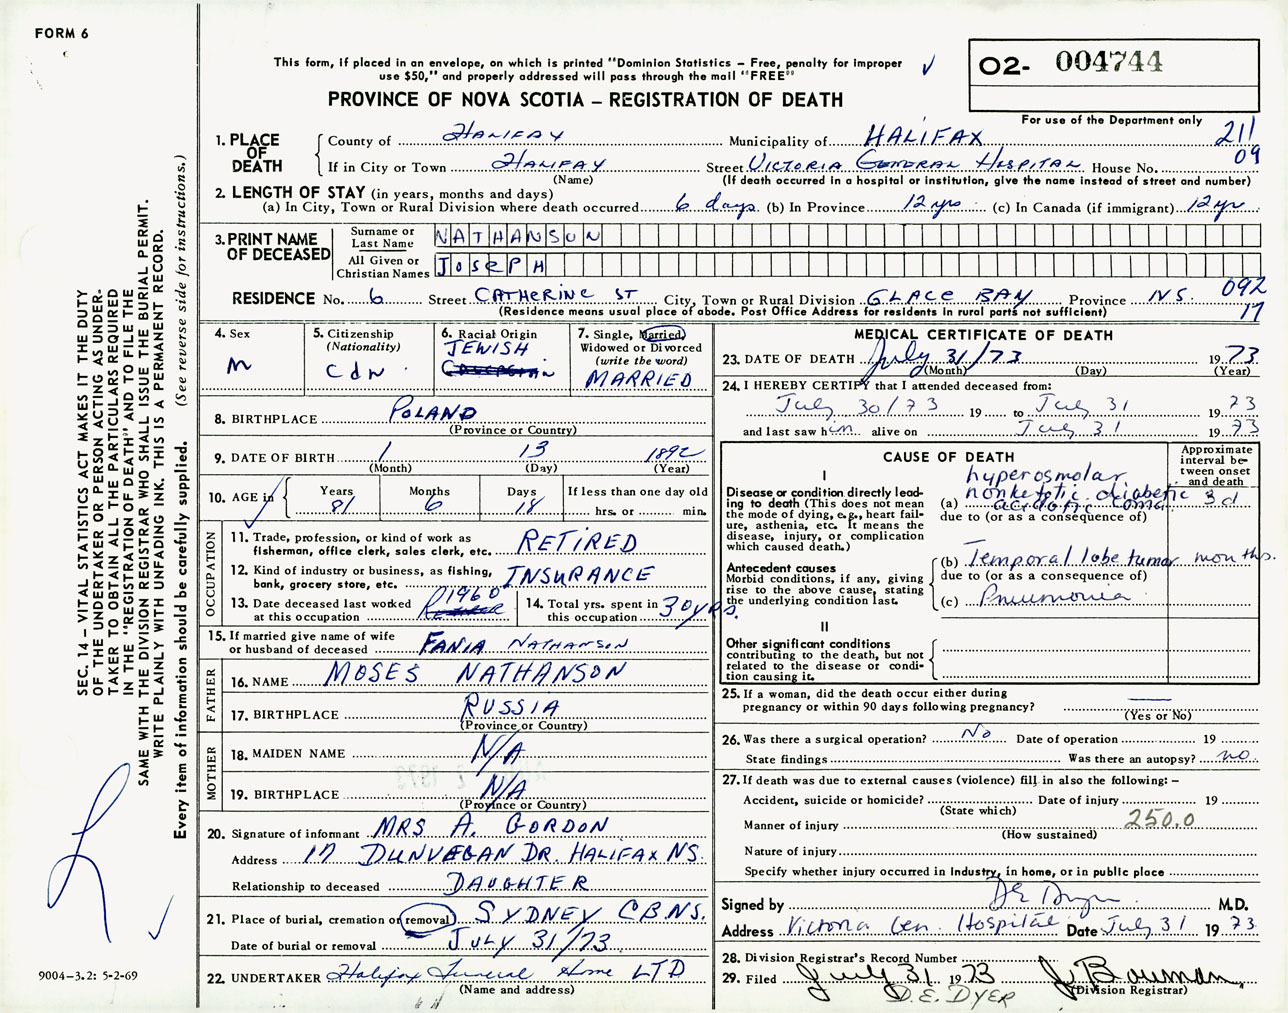 FORM 6
This form, if placed in an envelope, on which is printed "Dominion Statistics – Free, penalty for improper
use $50," and properly addressed will pass through the mail "FREE"
PROVINCE OF NOVA SCOTIA – REGISTRATION OF DEATH
02- 004744
For use of the Department only
211
09
1. PLACE OF DEATH
County of Halifax Municipality of HALIFAX
If in City or Town Halifax Street VICTORIA GENERAL HOSPITAL House No.
(Name) (If death occurred in a hospital or institution, give the name instead of street and number)
2. LENGTH OF STAY (in years, months and days)
(a) In City, Town or Rural Division where death occurred 6 days (b) In Province 12 yrs (c) In Canada (if immigrant) 12 yr
3. PRINT NAME OF DECEASED
Surname or Last Name NATHANSON
All Given or Christian Names JOSEPH
RESIDENCE No. 6 Street CATHERINE ST City, Town or Rural Division GLACE BAY Province NS
(Residence means usual place of abode. Post Office Address for residents in rural parts not sufficient)
092
17
4. Sex
M
5. Citizenship
(Nationality)
Cdn
6. Racial Origin
JEWISH
7. Single, Married,
Widowed or Divorced
(write the word)
MARRIED
8. BIRTHPLACE POLAND
(Province or Country)
9. DATE OF BIRTH 1 13 1892
(Month) (Day) (Year)
10. AGE in
Years Months Days If less than one day old
81 6 18 hrs. or min.
OCCUPATION
11. Trade, profession, or kind of work as
fisherman, office clerk, sales clerk, etc. RETIRED
12. Kind of industry or business, as fishing,
bank, grocery store, etc. INSURANCE
13. Date deceased last worked
at this occupation 1960
14. Total yrs. spent in
this occupation 30 yrs.
15. If married give name of wife
or husband of deceased FANIA NATHANSON
FATHER
16. NAME MOSES NATHANSON
17. BIRTHPLACE RUSSIA
(Province or Country)
MOTHER
18. MAIDEN NAME N/A
19. BIRTHPLACE N/A
(Province or Country)
20. Signature of informant MRS A. GORDON
Address 17 DUNVEGAN DR. HALIFAX NS.
Relationship to deceased DAUGHTER
21. Place of burial, cremation or removal SYDNEY C.B. NS.
Date of burial or removal JULY 31/73
22. UNDERTAKER Halifax Funeral Home LTD
(Name and address)
MEDICAL CERTIFICATE OF DEATH
23. DATE OF DEATH July 31/73 1973
(Month) (Day) (Year)
24. I HEREBY CERTIFY that I attended deceased from:
July 30/73 19 to July 31 1973
and last saw him alive on July 31 1973
CAUSE OF DEATH
Approximate
interval be-
tween onset
and death
I
Disease or condition directly lead-
ing to death (This does not mean
the mode of dying, e.g., heart fail-
ure, asthenia, etc. It means the
disease, injury, or complication
which caused death.)
hyperosmolar
nonketotic diabetic
(a) acidotic coma 3d
due to (or as a consequence of)
Antecedent causes
Morbid conditions, if any, giving
rise to the above cause, stating
the underlying condition last.
(b) Temporal lobe tumor months.
due to (or as a consequence of)
(c) Pneumonia
II
Other significant conditions
contributing to the death, but not
related to the disease or condi-
tion causing it.
25. If a woman, did the death occur either during
pregnancy or within 90 days following pregnancy?
(Yes or No)
26. Was there a surgical operation? No Date of operation 19
State findings Was there an autopsy? no.
27. If death was due to external causes (violence) fill in also the following: –
Accident, suicide or homicide? Date of injury 19
(State which)
Manner of injury 250.0
(How sustained)
Nature of injury
Specify whether injury occurred in Industry, in home, or in public place
Signed by DE Dyer M.D.
Address Victoria Gen. Hospital Date July 31 1973
28. Division Registrar's Record Number
29. Filed July 31 1973 J. Bowman
(Division Registrar)
D.E. DYER
SEC. 14 – VITAL STATISTICS ACT MAKES IT THE DUTY
OF THE UNDERTAKER OR PERSON ACTING AS UNDER-
TAKER TO OBTAIN ALL THE PARTICULARS REQUIRED
IN THE "REGISTRATION OF DEATH" AND TO FILE THE
SAME WITH THE DIVISION REGISTRAR WHO SHALL ISSUE THE BURIAL PERMIT.
WRITE PLAINLY WITH UNFADING INK. THIS IS A PERMANENT RECORD.
Every item of information should be carefully supplied. (See reverse side for instructions.)
9004-3.2: 5-2-69